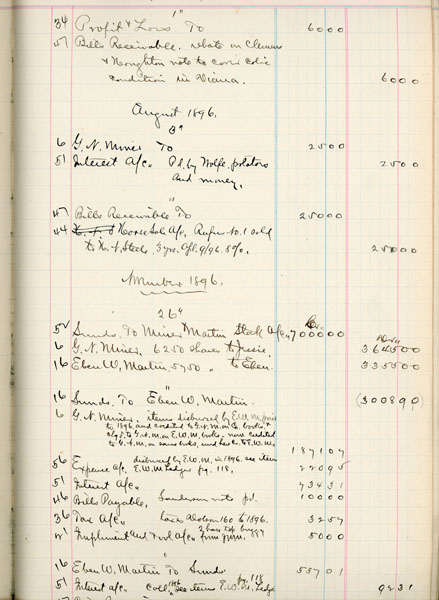 1"
34 Profit & Loss To 6000
47 Bills Receivable, rebate on
& Houghton note to cover colic
condition in Diana. 6000
August 1896.
6 G. N. Miner To 2500
51 Interest a/c. Pd. by Wolfe, potatoes 2500
and money.
"
47 Bills Receivable To 25000
44 Horse Sale a/c, No. 1 sold
to Steele, 3 yrs. 9/96. 8%. 25000
November 1896.
26"
52 Sunds. To Miner & Martin Stock a/c, 700000 Cr.
6 G. N. Miner, 6250 shares to Jessie. 364500
16 Eben W. Martin, 5750 " to Eben. 335500
"
16 Sunds. To Eben W. Martin. (300890)
6 G. N. Miner, items disbursed by E.W.M. prior
to 1896 and credited to G.N.M. on Co. books, &
to G.N.M. on E.W.M. books, now credited
to G.N.M. on same books, and to E.W.M. 187107
56 Expense a/c, disbursed by E.W.M. in 1896, see items
E.W.M. Ledger pg. 118, 22095
51 Interest a/c 73431
46 Bills Payable, note pd. 10000
36 Tax a/c 160 to 1896. 3257
21 Implement and Tool a/c 2 5000
"
16 Eben W. Martin To Sunds 55701
51 Interest a/c. Coll. 1896 see items E.W.M. Ledge pg. 118 9231